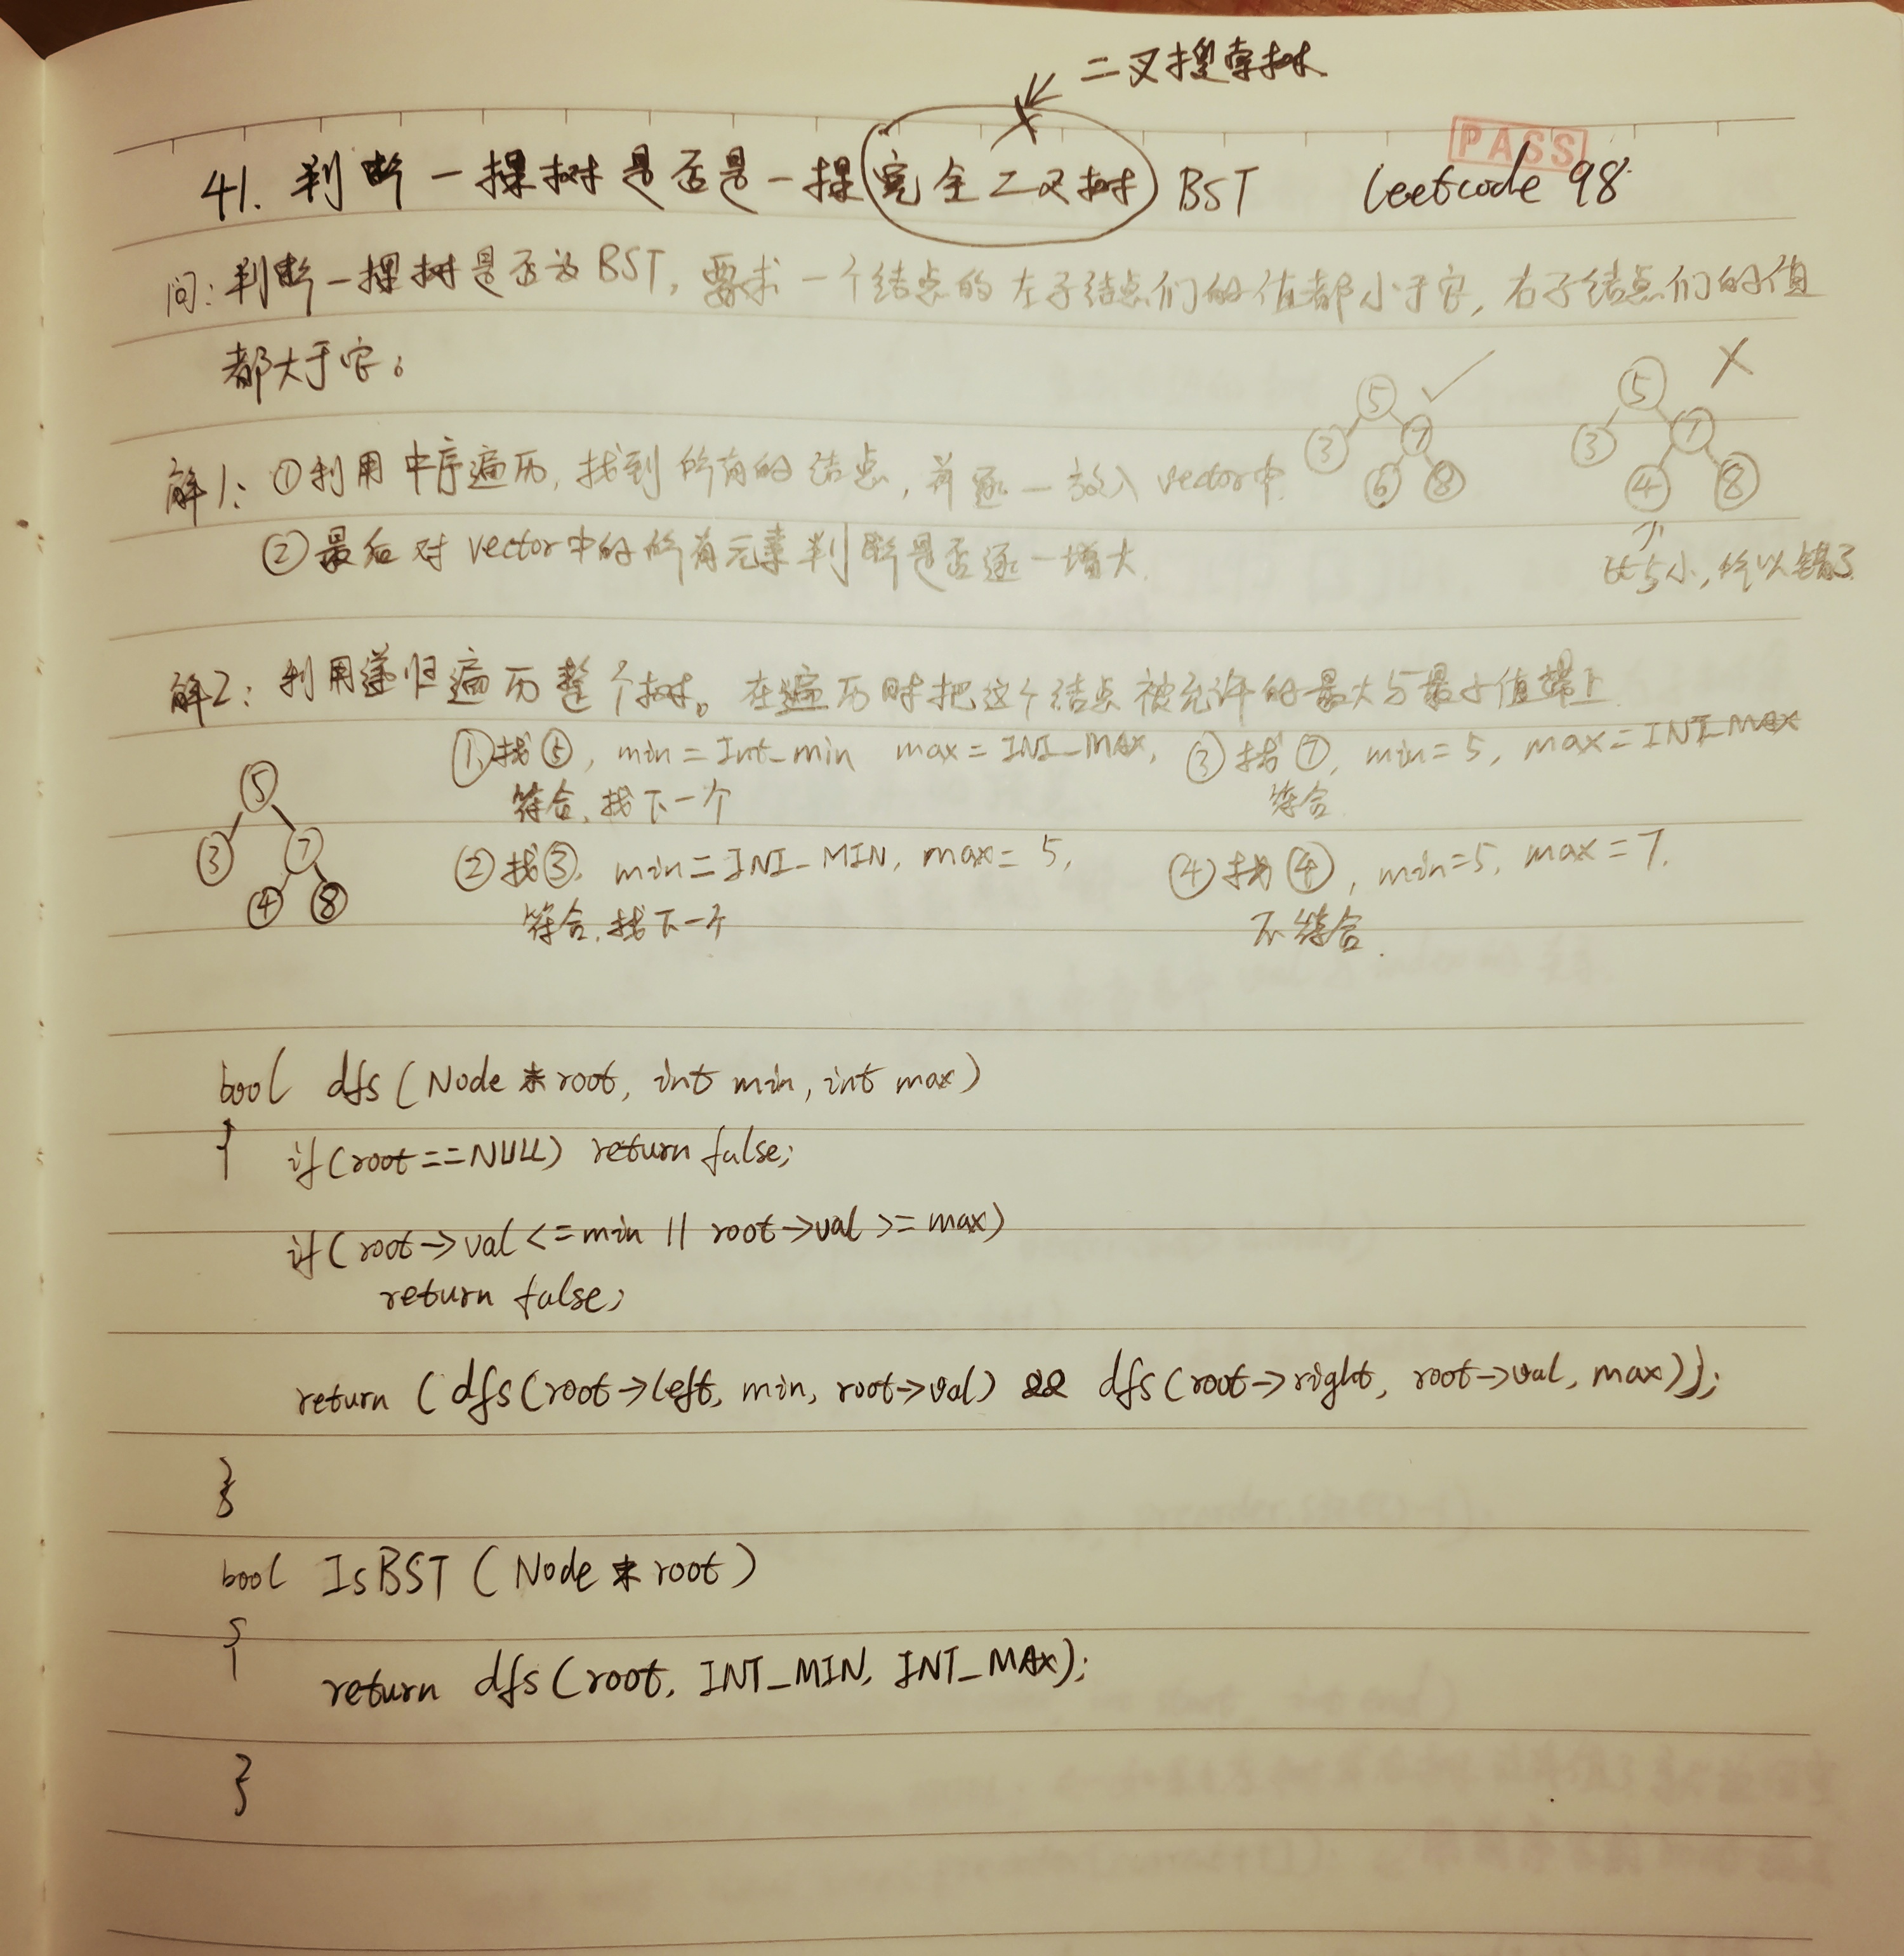 二叉搜索树
41. 判断一棵树是否是一棵完全二叉树 BST Leetcode 98
PASS
问: 判断一棵树是否为BST, 要求一个结点的左子结点们的值都小于它, 右子结点们的值
都大于它。
5 3 7 6 8
5 3 7 4 8
比5小, 所以错了
解1: ①利用中序遍历, 找到所有的结点, 并逐一放入vector中.
②最后对vector中的所有元素判断是否逐一增大.
解2: 利用递归遍历整个树。在遍历时把这个结点被允许的最大与最小值带上
5 3 7 4 8
①找⑤, min = Int_min max = INT_MAX,
符合, 找下一个
②找③, min = INT_MIN, max = 5,
符合, 找下一个
③找⑦, min = 5, max = INT_MAX
符合
④找④, min=5, max=7.
不符合.
bool dfs (Node * root, int min, int max)
{ if (root == NULL) return false;
if (root->val <= min || root->val >= max)
return false;
return (dfs(root->left, min, root->val) && dfs(root->right, root->val, max));
}
bool IsBST (Node * root)
{
return dfs (root, INT_MIN, INT_MAX);
}